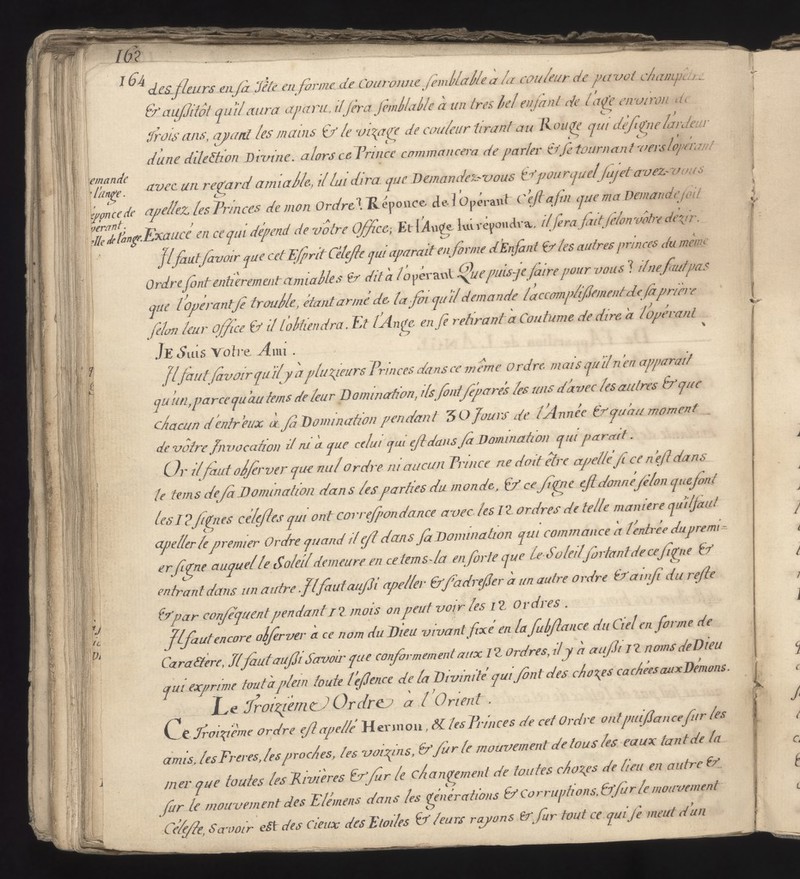 162
164
des fleurs en sa Tête en forme de Couronne semblable à la couleur de pavot champêtre
& aussitôt qu'il aura aparu, il sera semblable à un tres bel enfant de l'age environ de
Trois ans, ayant les mains & le vizage de couleur tirant au Rouge qui désigne l'ardeur
d'une dilection Divine. alors ce Prince commancera de parler & se tournant vers l'opérant
emande
l'ange.
avec un regard amiable, il lui dira que Demandez-vous & pourquel sujet avez-vous
éponce de
pérant.
apellez les Princes de mon Ordre? Réponce de l'Opérant C'est afin que ma Demande soit
elle de l'ange.
Exaucé en ce qui dépend de vôtre Office; Et l'Ange lui répondra, il sera fait sélon vôtre dézir.
Il faut savoir que cet Esprit Céleste qui aparait en forme d'Enfant & les autres princes du même
Ordre sont entièrement amiables & dit à l'opérant Que puis-je faire pour vous? il ne faut pas
que l'opérant se trouble, étant armé de la foi qu'il demande l'accomplissement de sa prière
sélon leur Office & il l'obtiendra. Et l'Ange en se retirant à Coutume de dire à l'opérant
JE Suis Votre Ami.
Il faut savoir qu'il y à pluzieurs Princes dans ce même ordre mais qu'il n'en apparait
qu'un, parce qu'au tems de leur Domination, ils sont séparés les uns d'avec les autres & que
chacun d'entr'eux à sa Domination pendant 30 Jours de l'Année & qu'au moment
de vôtre Invocation il ni à que celui qui est dans sa Domination qui parait.
Or il faut observer que nul ordre ni aucun Prince ne doit être apellé si ce n'est dans
le tems de sa Domination dans les parties du monde, & ce signe est donné sélon que sont
les 12 signes célestes qui ont correspondance avec les 12 ordres de telle maniere qu'il faut
apeller le premier Ordre quand il est dans sa Domination qui commance à l'entrée du premi-
er signe auquel le Soleil demeure en ce tems-la en sorte que le Soleil sortant de ce signe &
entrant dans un autre. Il faut aussi apeller & s'adresser à un autre ordre & ainsi du reste
& par conséquent pendant 12 mois on peut voir les 12 Ordres.
Il faut encore observer à ce nom du Dieu vivant fixé en la substance du Ciel en forme de
Caractere, Il faut aussi Savoir que conformement aux 12 Ordres, il y à aussi 12 noms de Dieu
qui exprime tout à plein toute l'essence de la Divinité qui sont des chozes cachées aux Démons.
Le Troizième Ordre à l'Orient.
Ce Troizième ordre est apellé Hermon, & les Princes de cet Ordre ont puissance sur les
amis, les Freres, les proches, les voizins, & sur le mouvement de tous les eaux tant de la
mer que toutes les Rivières & sur le changement de toutes chozes de lieu en autre &
sur le mouvement des Elémens dans les générations & Corruptions, & sur le mouvement
Céleste, Savoir est des Cieux des Etoiles & leurs rayons & sur tout ce qui se meut d'un